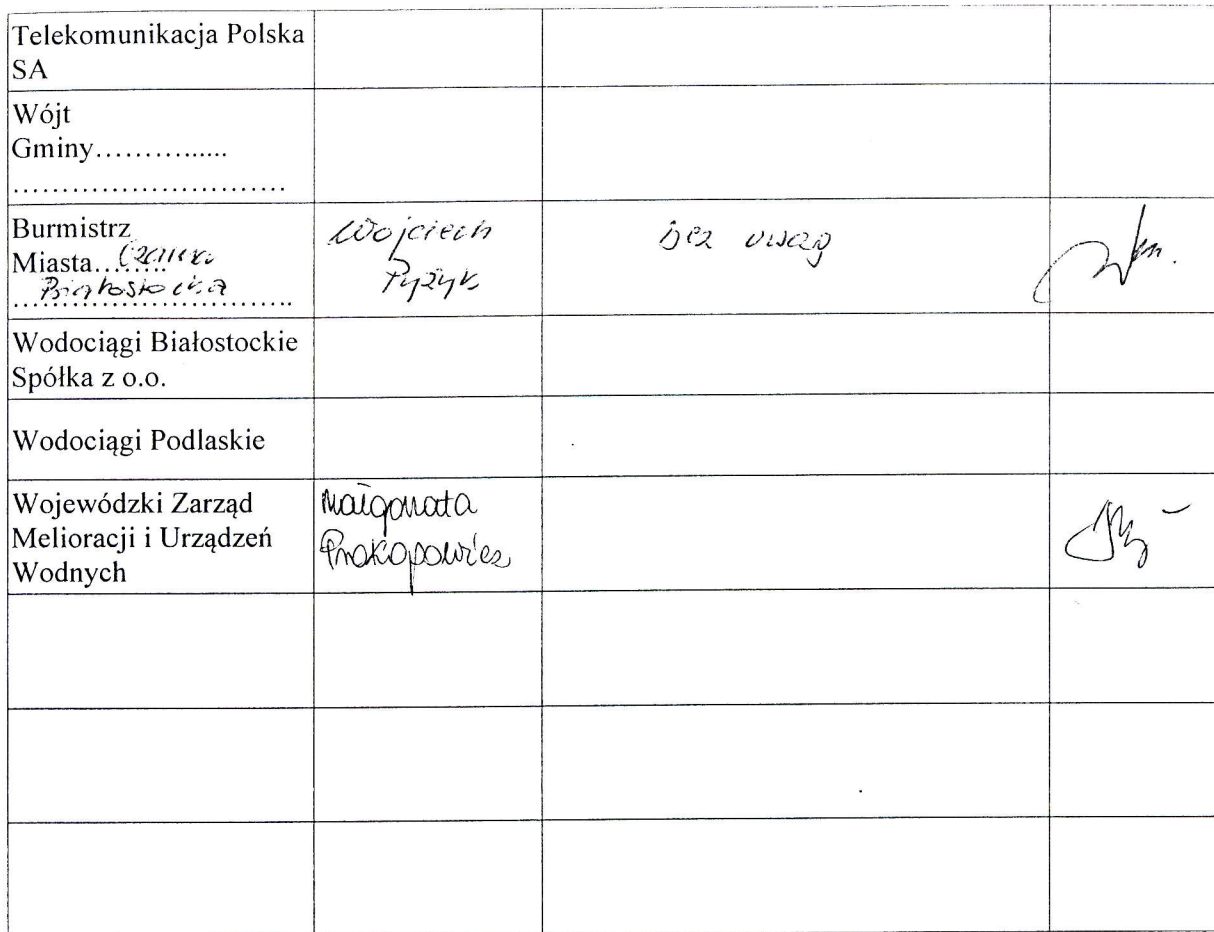 Telekomunikacja Polska
SA
Wójt
Gminy................
............................
Burmistrz
Miasta........ Czarna
Białostocka
Wojciech
Pyżyk
bez uwag
Wodociągi Białostockie
Spółka z o.o.
Wodociągi Podlaskie
Wojewódzki Zarząd
Melioracji i Urządzeń
Wodnych
Małgorzata
Prokopowicz